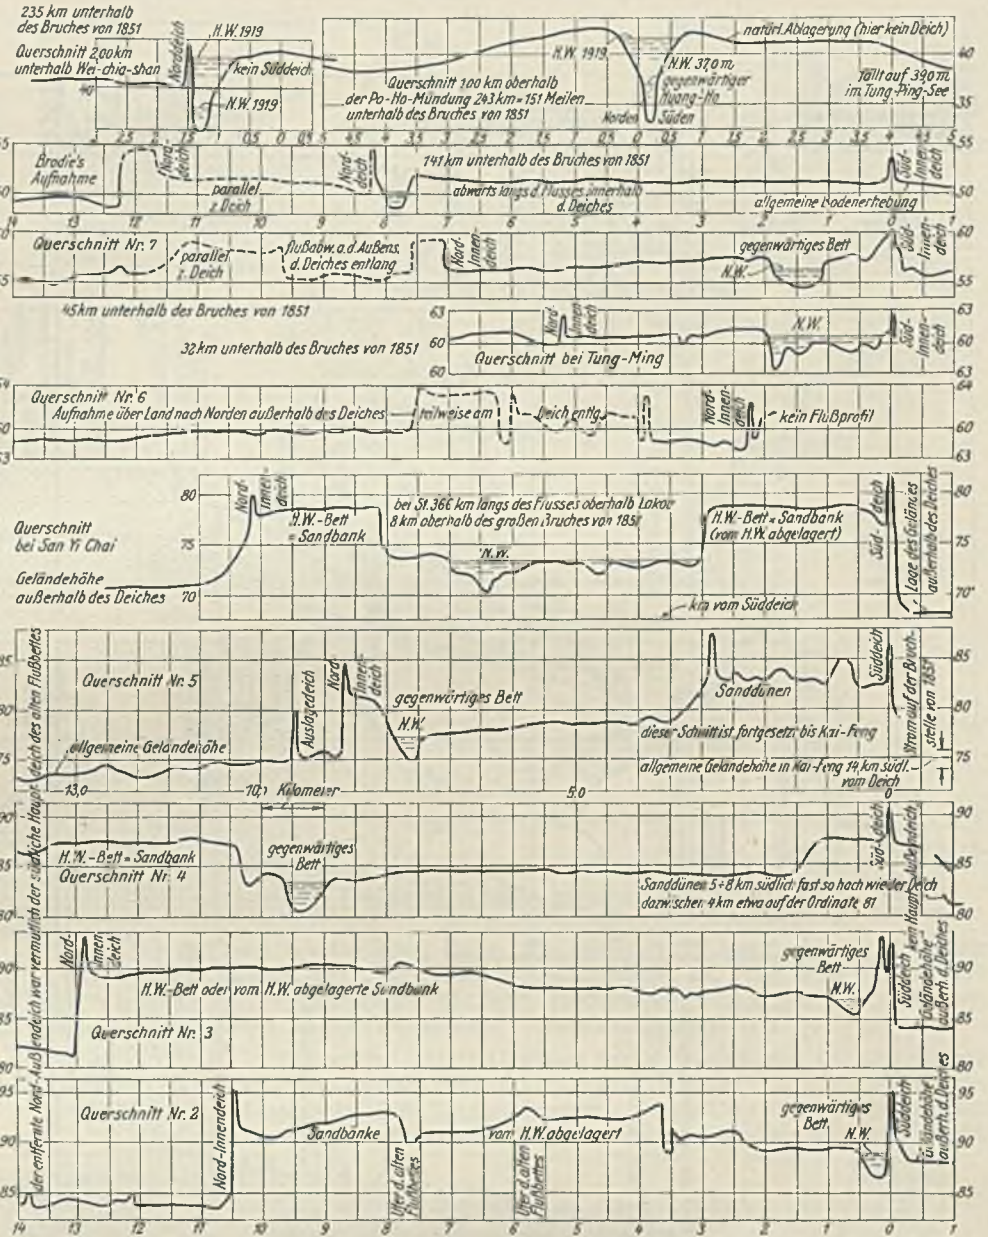 235 km unterhalb
des Bruches von 1851
Querschnitt 2,00 km
unterhalb Wei-chia-shan
Norddeich
H.W. 1919
kein Süddeich
N.W. 1919
40
H.W. 1919
N.W. 37,0 m
gegenwärtiger
Huang-Ho
Norden
Süden
Querschnitt 1,00 km oberhalb
der Po-Ho-Mündung 243 km = 151 Meilen
unterhalb des Bruches von 1851
natürl. Ablagerung (hier kein Deich)
fällt auf 39,0 m
im Tung-Ping-See
40
35
3 2,5 2 1,5 1 0,5 0 0,5
0 1 1,5 2 2,5 3 3,5 4 4,5 5
Brodie's
Aufnahme
Nord-
deich
parallel
z. Deich
Nord-
deich
141 km unterhalb des Bruches von 1851
abwärts längs d. Flusses innerhalb
d. Deiches
allgemeine Bodenerhebung
Süd-
Innen-
deich
55
50
14 13 12 11 10 9 8 7 6 5 4 3 2 1 0 1
Querschnitt Nr. 7
parallel
z. Deich
flußabw. a. d. Außens.
d. Deiches entlang
Nord-
Innen-
deich
gegenwärtiges Bett
N.W.
Süd-
Innen-
deich
60
55
45 km unterhalb des Bruches von 1851
32 km unterhalb des Bruches von 1851
Nord-
Innen-
deich
Querschnitt bei Tung-Ming
N.W.
Süd-
Innen-
deich
63
60
60
63
60
63
Querschnitt Nr. 6
Aufnahme über Land nach Norden außerhalb des Deiches
teilweise am
Deich entlg.
Nord-
Innen-
deich
kein Flußprofil
64
60
63
Querschnitt
bei San Yi Chai
Geländehöhe
außerhalb des Deiches
80
75
70
Nord-
Innen-
deich
H.W.-Bett
= Sandbank
bei St. 366 km längs des Flusses oberhalb
8 km oberhalb des großen Bruches von
N.W.
H.W.-Bett = Sandbank
(vom H.W. abgelagert)
km vom Süddeich
Süd-
deich
Lage des Geländes
außerhalb des Deiches
80
75
70
Querschnitt Nr. 5
allgemeine Geländehöhe
Auslagedeich
Nord-
Innen-
deich
gegenwärtiges Bett
N.W.
Sanddünen
dieser Schnitt ist fortgesetzt bis Kai-Feng
allgemeine Geländehöhe in Kai-Feng 14 km südl.
vom Deich
Süddeich
Strom auf der Bruch-
stelle von 1851
85
80
75
13,0
Kilometer
5,0
0
der entfernte Nord-Außendeich war vermutlich der südliche Haupt-deich des alten Flußbettes
H.W.-Bett = Sandbank
Querschnitt Nr. 4
gegenwärtiges
Bett
Sanddünen 5÷8 km südlich fast so hoch wie der Deich
dazwischen 4 km etwa auf der Ordinate 81
Süd-deich
90
85
80
Nord-
Innen-
deich
H.W.-Bett oder vom H.W. abgelagerte Sandbank
Querschnitt Nr. 3
gegenwärtiges
Bett
N.W.
Süddeich kein Haupt-Außendeich
Geländehöhe
außerh. d. Deiches
90
85
80
Querschnitt Nr. 2
Nord-Innendeich
Sandbänke
Ufer d. alten
Flußbettes
vom H.W. abgelagert
Ufer d. alten
Flußbettes
gegenwärtiges
Bett
N.W.
Süddeich
Geländehöhe
außerh. d. Deiches
95
90
85
14 13 12 11 10 9 8 7 6 5 4 3 2 1 0 1